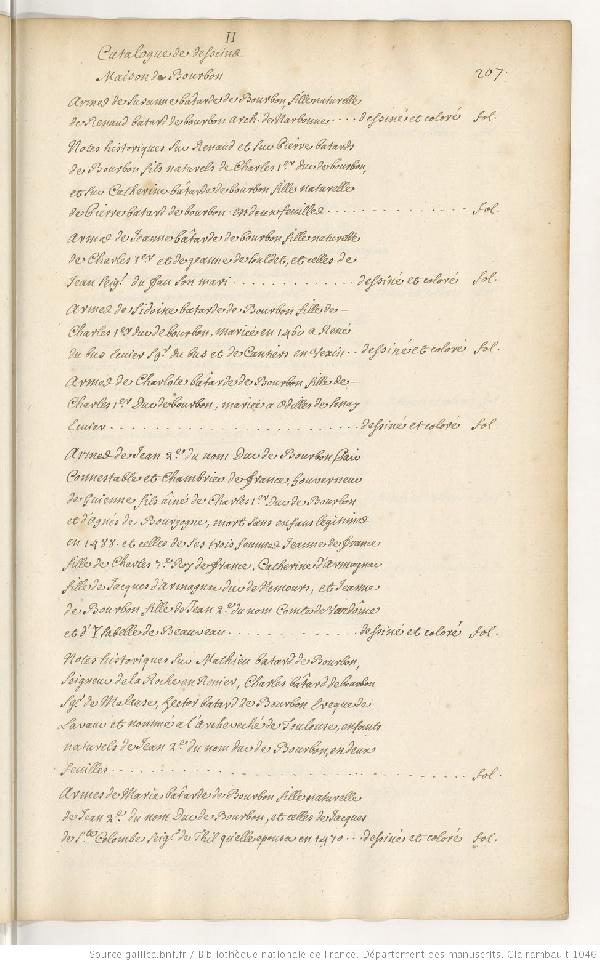 II
Catalogue de desseins
Maison de Bourbon
207.
Armes de Suzanne batarde de Bourbon fille naturelle
de Renaud batard de bourbon Arch. de Narbonne . . . dessiné et coloré fol.
Notes historiques sur Renaud et sur Pierre batards
de Bourbon fils naturels de Charles 1.er duc de bourbon,
et sur Catherine bâtarde de bourbon fille naturelle
de Pierre batard de bourbon en deux feuilles . . . fol.
Armes de Jeanne bâtarde de bourbon fille naturelle
de Charles 1.er et de Jeanne de Souldet, et celles de
Jean Seig.r du fau son mari . . . dessiné et coloré fol.
Armes de Sidoine batarde de Bourbon fille de
Charles 1.er duc de bourbon, mariée en 1460 a René
du bus Ecuier Sg.r du bus et de Cantiers en Vexin . . dessiné et coloré fol.
Armes de Charlote bâtarde de Bourbon, fille de
Charles 1.er Duc de bourbon, mariée a Odilles de Senay
Ecuier . . . dessiné et coloré fol.
Armes de Jean 2.e du nom Duc de Bourbon Pair
Connestable et Chambrier de france Gouverneur
de Guienne fils ainé de Charles 1.er Duc de Bourbon
et d'Agnés de Bourgogne, mort sans enfans legitimes
en 1488. et celles de ses trois femmes Jeanne de france
fille de Charles 7.e Roy de france, Catherine d'Armagnac
fille de Jacques d'Armagnac duc de Nemours, et Jeanne
de Bourbon fille de Jean 2.e du nom Comte de Vandôme
et d'Isabelle de Beauveau . . . dessiné et coloré fol.
Notes historiques sur Mathieu batard de Bourbon,
Seigneur de la Roche en Renier, Charles bâtard de bourbon
Sg.r de Malause, hector batard de Bourbon Eveque de
Lavaur et nommé a l'Archeveché de Toulouse, enfants
naturels de Jean 2.e du nom duc de Bourbon, en deux
feuilles . . . fol.
Armes de Marie bâtarde de Bourbon fille naturelle
de Jean 2.e du nom Duc de Bourbon, et celles de Jacques
de S.te Colombe Seig.r de Thil qu'elle epousa en 1470 . . . dessiné et coloré fol.
Source gallica.bnf.fr / Bibliothèque nationale de France. Département des manuscrits. Clairambault 1046